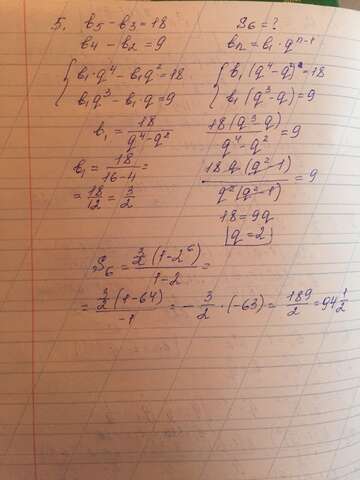 5. b₅ - b₃ = 18   S₆ = ?
b₄ - b₂ = 9   bₙ = b₁ · qⁿ⁻¹
{ b₁ · q⁴ - b₁q² = 18   { b₁(q⁴ - q²) = 18
b₁q³ - b₁ · q = 9   b₁(q³ - q) = 9
b₁ = 18/(q⁴ - q²)   18(q³ - q)/(q⁴ - q²) = 9
b₁ = 18/(16 - 4) =   18q(q² - 1)/(q²(q² - 1)) = 9
= 18/12 = 3/2   18 = 9q
|q = 2|
S₆ = 3/2 (1 - 2⁶)/(1 - 2) =
= 3/2 (1 - 64)/(-1) = - 3/2 · (-63) = 189/2 = 94 1/2